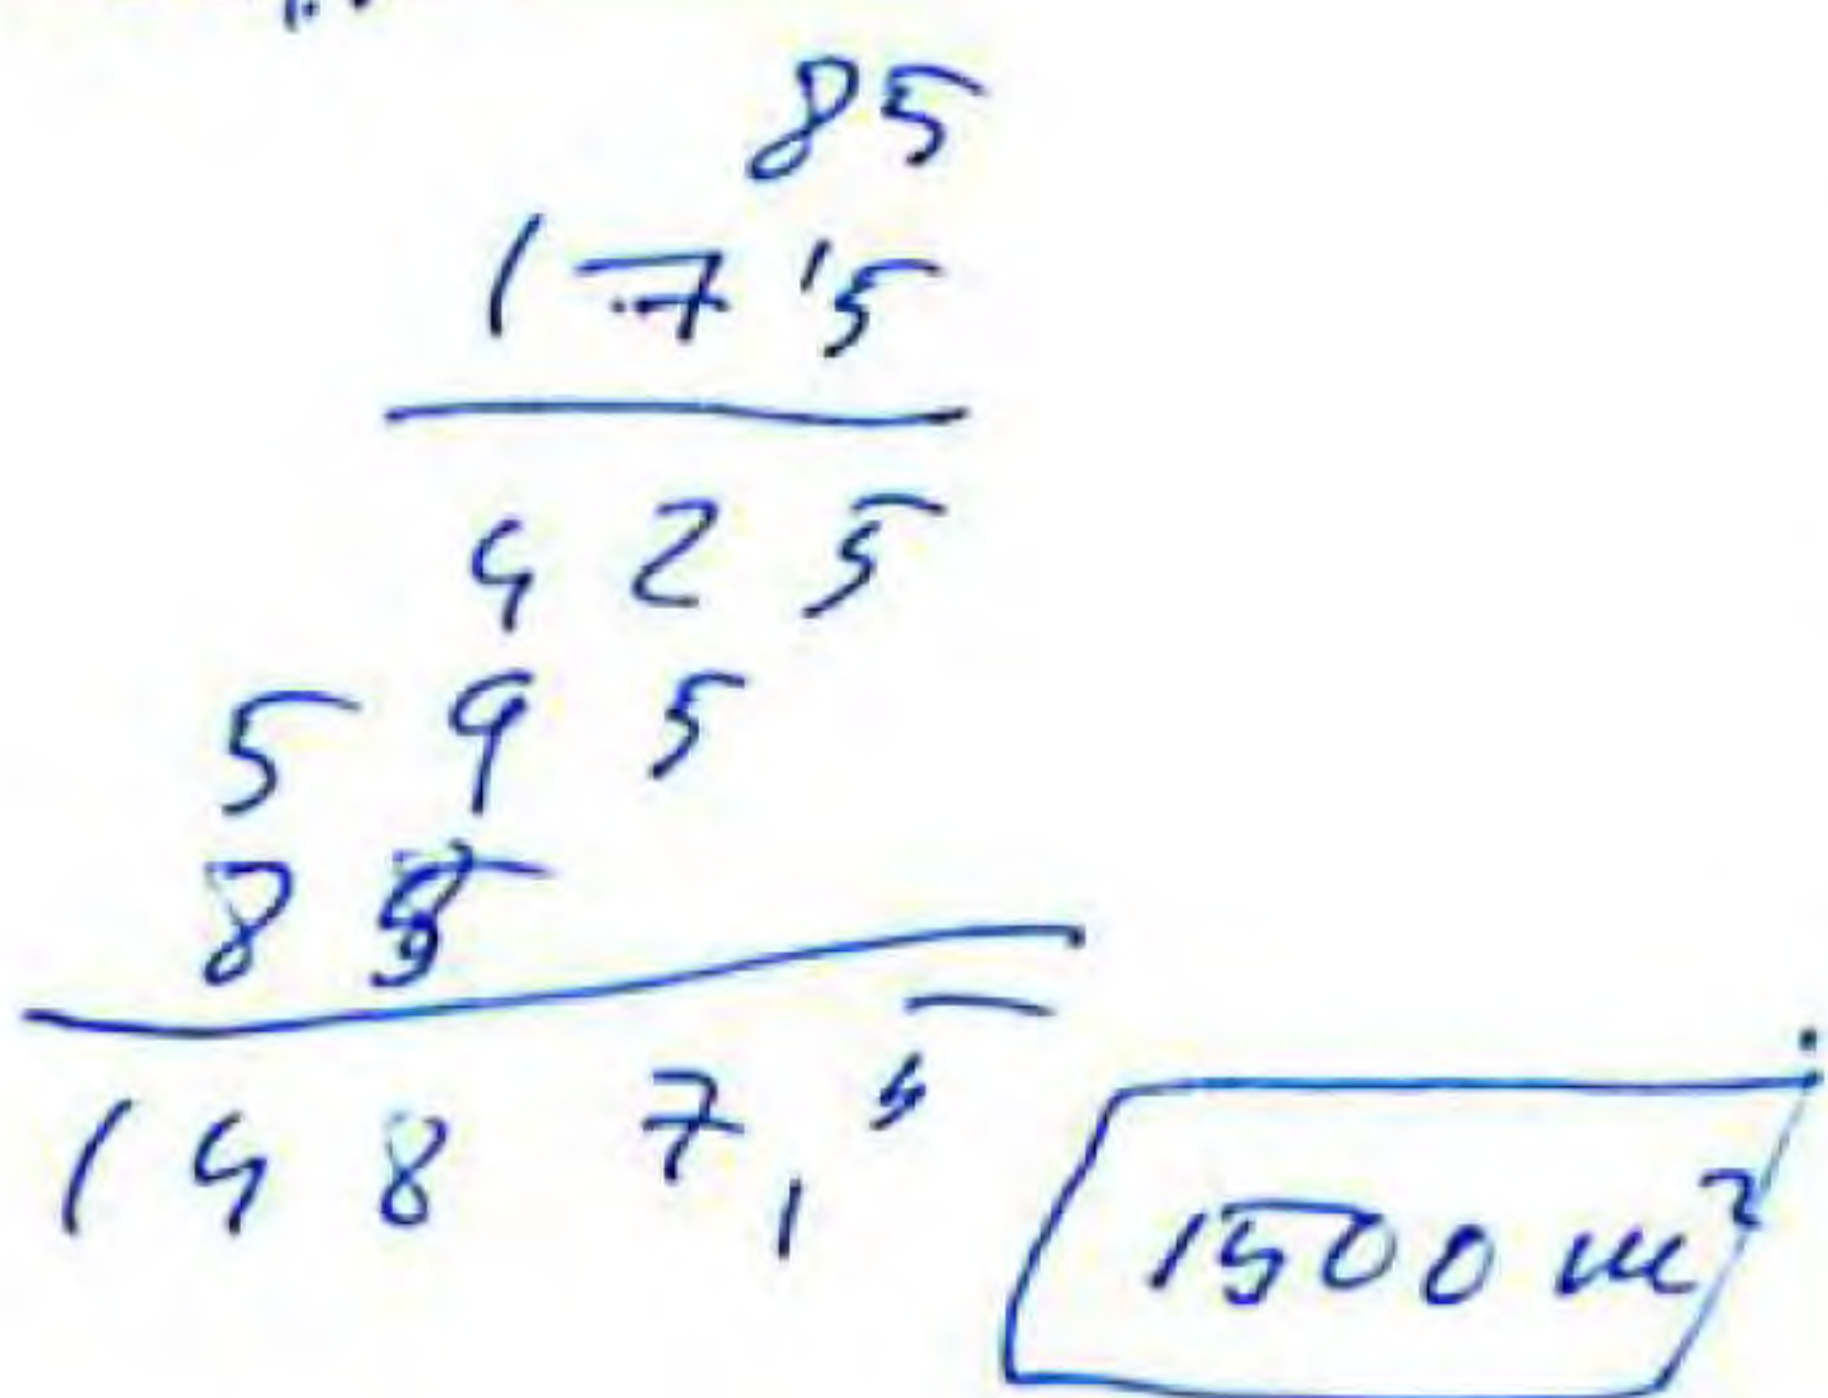 85
17,5
425
595
85
1487,5
1500 m²